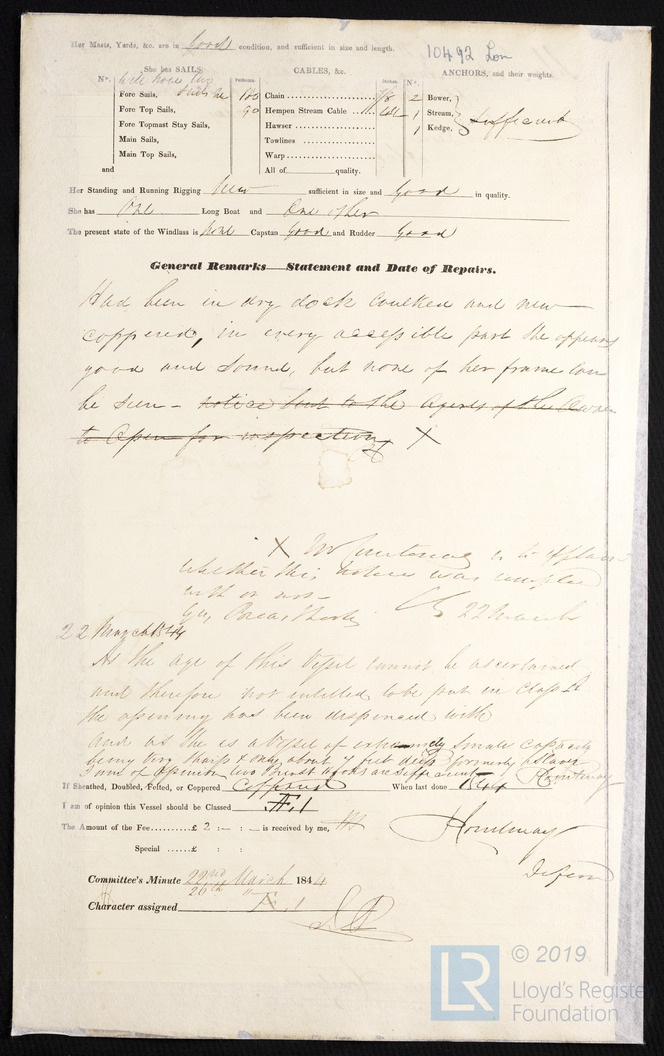 Her Masts, Yards, &c. are in Good condition, and sufficient in size and length.
10492 Lon
She has SAILS.
CABLES, &c.
ANCHORS, and their weights.
N°.
Fathoms.
Inches.
N°.
Fore Sails,
Chain 120 7/8
2 Bower,
Fore Top Sails,
Hempen Stream Cable 90
1 Stream, Sufficient
Fore Topmast Stay Sails,
Hawser
1 Kedge,
Main Sails,
Towlines
Main Top Sails,
Warp
and
All of quality.
Her Standing and Running Rigging New sufficient in size and Good in quality.
She has One Long Boat and One other
The present state of the Windlass is None Capstan Good and Rudder Good
General Remarks—Statement and Date of Repairs.
Had been in dry dock caulked and new
coppered, in every accessible part she appears
good and sound, but none of her frame can
be seen - notice sent to the Agents of the Owner
to open for inspection X
X Mr Courtenay is to explain
whether this notice was complied
with or not -
22 March
22 March 1844
As the age of this Vessel cannot be ascertained
and therefore not intitled to be put in Class A
the opening has been dispensed with
and as she is a Vessel of extremely small capacity
being very sharp & only about 7 feet deep formerly a Slaver
I am of opinion two Breast Hooks are sufficient Courtenay
If Sheathed, Doubled, Felted, or Coppered Coppered When last done 1844
I am of opinion this Vessel should be Classed Æ 1
The Amount of the Fee......£ 2 : - : - is received by me,
Special ......£ : :
Courtenay
Committee's Minute 22nd March 1844
26th "
Character assigned Æ 1
LR © 2019
Lloyd's Register
Foundation